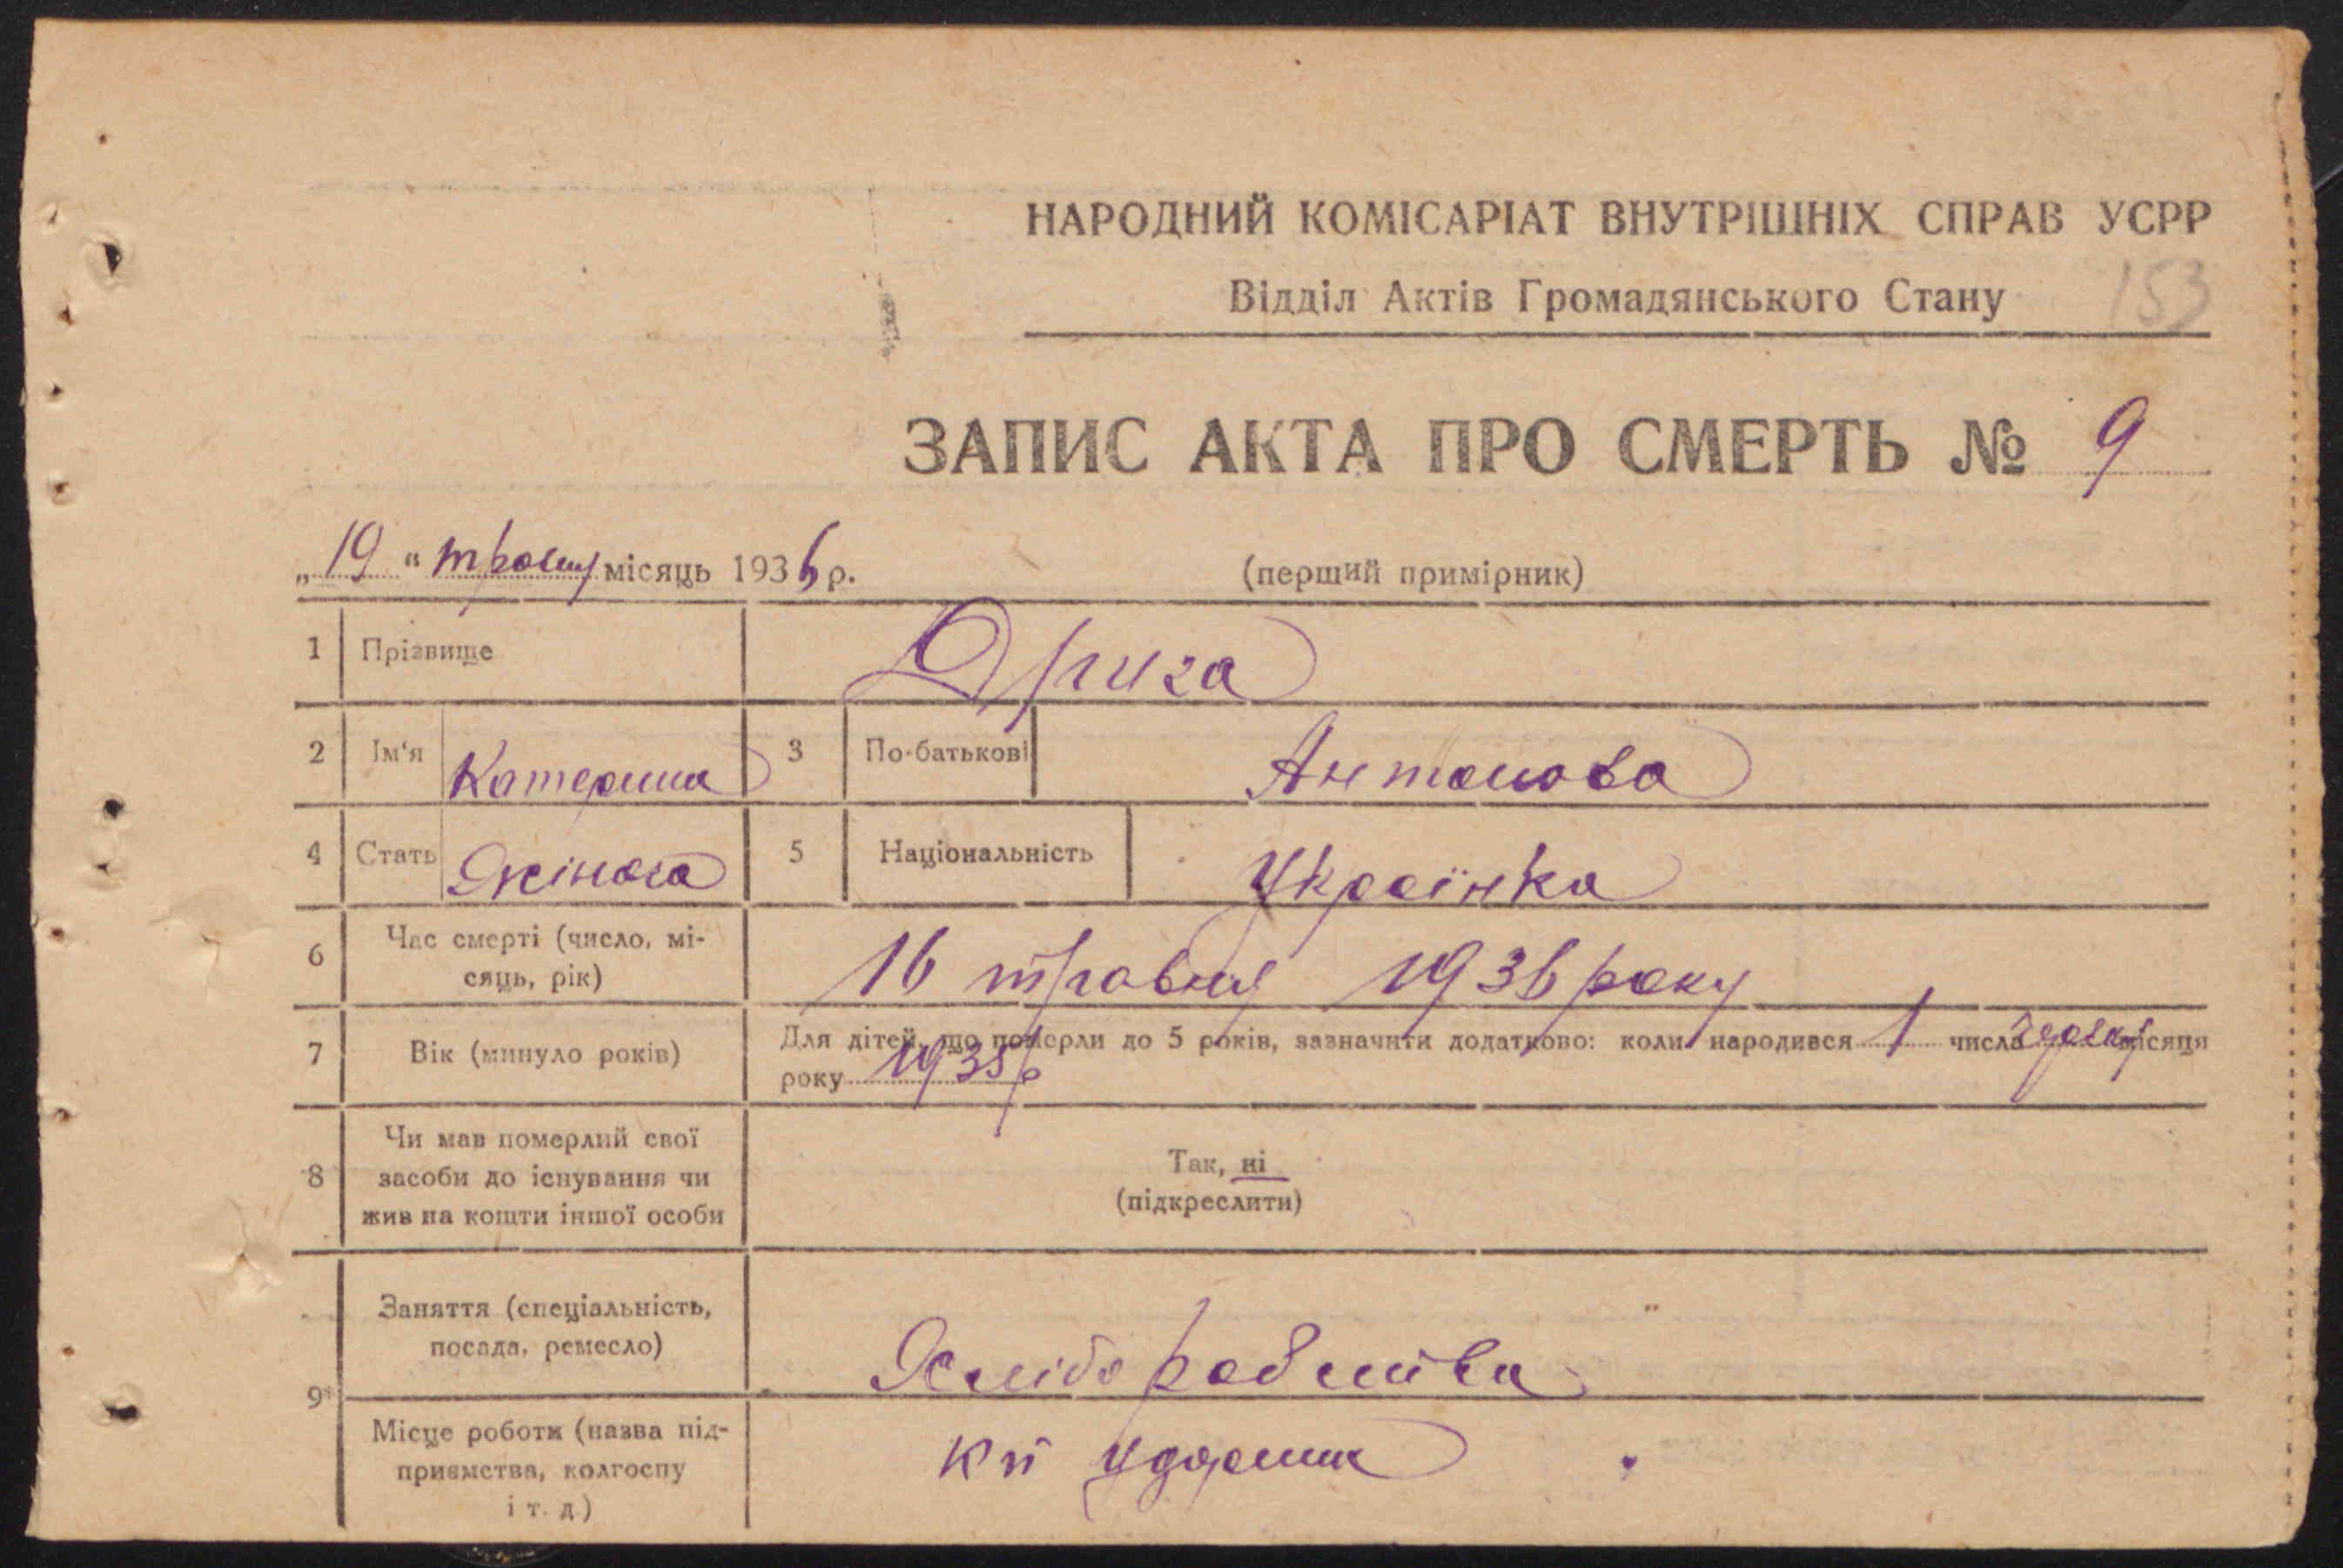 НАРОДНИЙ КОМІСАРІАТ ВНУТРІШНІХ СПРАВ УСРР
Відділ Актів Громадянського Стану 153
ЗАПИС АКТА ПРО СМЕРТЬ № 9
„19“ місяць 1936 р. (перший примірник)
1 Прізвище Дрига
2 Ім'я Катерина 3 По-батькові Антонова
4 Стать Жіноча 5 Національність Українка
6 Час смерті (число, мі-
сяць, рік) 16 травня 1936 року
7 Вік (минуло років) Для дітей, що померли до 5 років, зазначити додатково: коли народився 1 числа місяця
року 1935 р
8 Чи мав померлий свої
засоби до існування чи
жив на кошти іншої особи
Так, ні
(підкреслити)
9 Заняття (спеціальність,
посада, ремесло)
Місце роботи (назва під-
приємства, колгоспу
і т. д.)
ударник